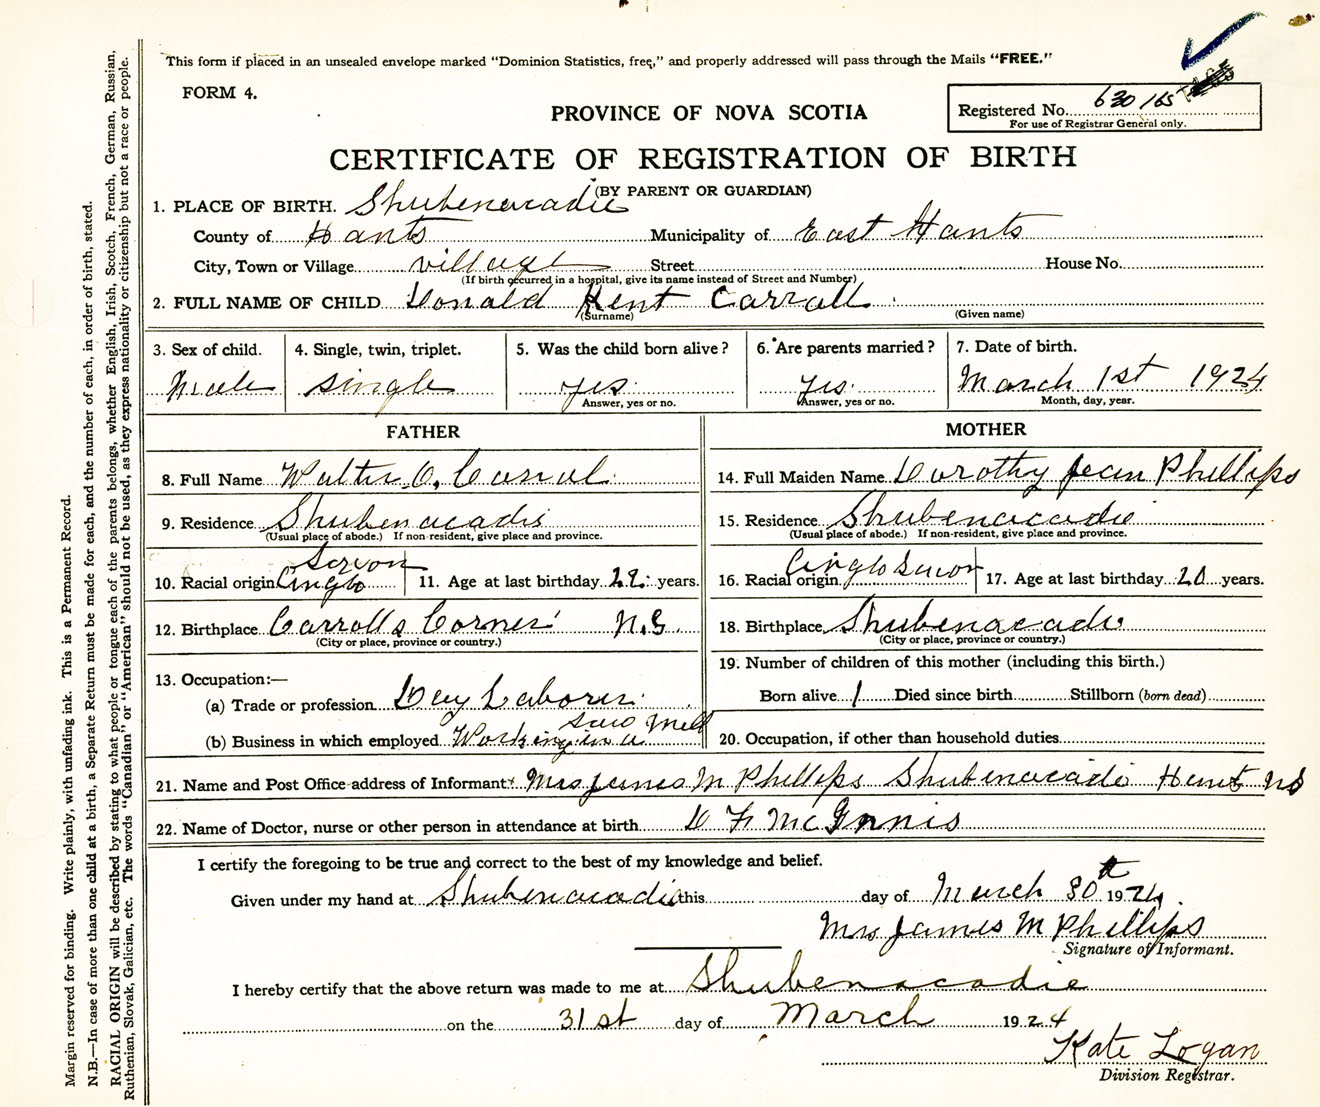 This form if placed in an unsealed envelope marked "Dominion Statistics, free," and properly addressed will pass through the Mails "FREE."
FORM 4.
PROVINCE OF NOVA SCOTIA
Registered No. 630165
For use of Registrar General only.
CERTIFICATE OF REGISTRATION OF BIRTH
(BY PARENT OR GUARDIAN)
1. PLACE OF BIRTH. Shubenacadie
County of Hants Municipality of East Hants
City, Town or Village village Street House No.
(If birth occurred in a hospital, give its name instead of Street and Number)
2. FULL NAME OF CHILD Donald Kent Carroll
(Surname) (Given name)
3. Sex of child. 4. Single, twin, triplet. 5. Was the child born alive? 6. Are parents married? 7. Date of birth.
Male single yes yes March 1st 1924
Answer, yes or no. Answer, yes or no. Month, day, year.
FATHER MOTHER
8. Full Name Walter O. Carrol 14. Full Maiden Name Dorothy Jean Phillips
9. Residence Shubenacadie 15. Residence Shubenacadie
(Usual place of abode.) If non-resident, give place and province. (Usual place of abode.) If non-resident, give place and province.
10. Racial origin Anglo Saxon 11. Age at last birthday 22 years. 16. Racial origin Anglo Saxon 17. Age at last birthday 20 years.
12. Birthplace Carrolls Corner N.S. 18. Birthplace Shubenacadie
(City or place, province or country.) (City or place, province or country.)
13. Occupation:— 19. Number of children of this mother (including this birth.)
(a) Trade or profession Day Laborer Born alive 1 Died since birth Stillborn (born dead)
(b) Business in which employed Working in a Saw Mill 20. Occupation, if other than household duties
21. Name and Post Office address of Informant Mrs James M Phillips Shubenacadie Hants NS
22. Name of Doctor, nurse or other person in attendance at birth D F McInnis
I certify the foregoing to be true and correct to the best of my knowledge and belief.
Given under my hand at Shubenacadie this day of March 30th 1924.
Mrs James M Phillips
Signature of Informant.
I hereby certify that the above return was made to me at Shubenacadie
on the 31st day of March 1924
Kate Logan
Division Registrar.
Margin reserved for binding. Write plainly, with unfading ink. This is a Permanent Record.
N.B.—In case of more than one child at a birth, a Separate Return must be made for each, and the number of each, in order of birth, stated.
RACIAL ORIGIN will be described by stating to what people or tongue each of the parents belongs, whether English, Irish, Scotch, French, German, Russian,
Ruthenian, Slovak, Galician, etc. The words "Canadian" or "American" should not be used, as they express nationality or citizenship but not a race or people.